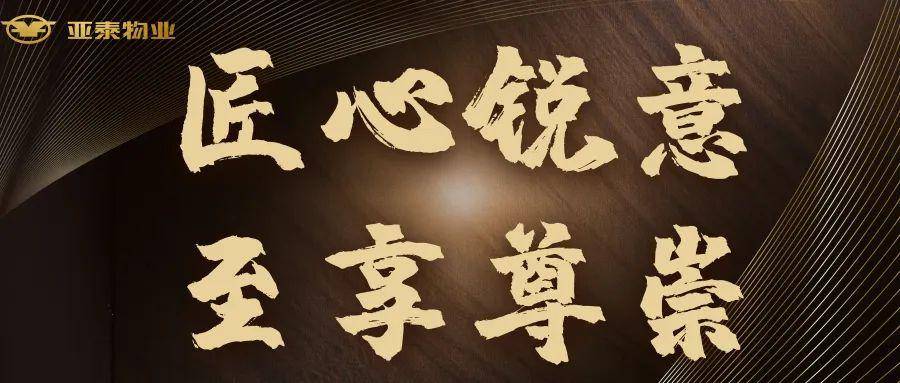 亚泰物业
匠心锐意
至享尊崇